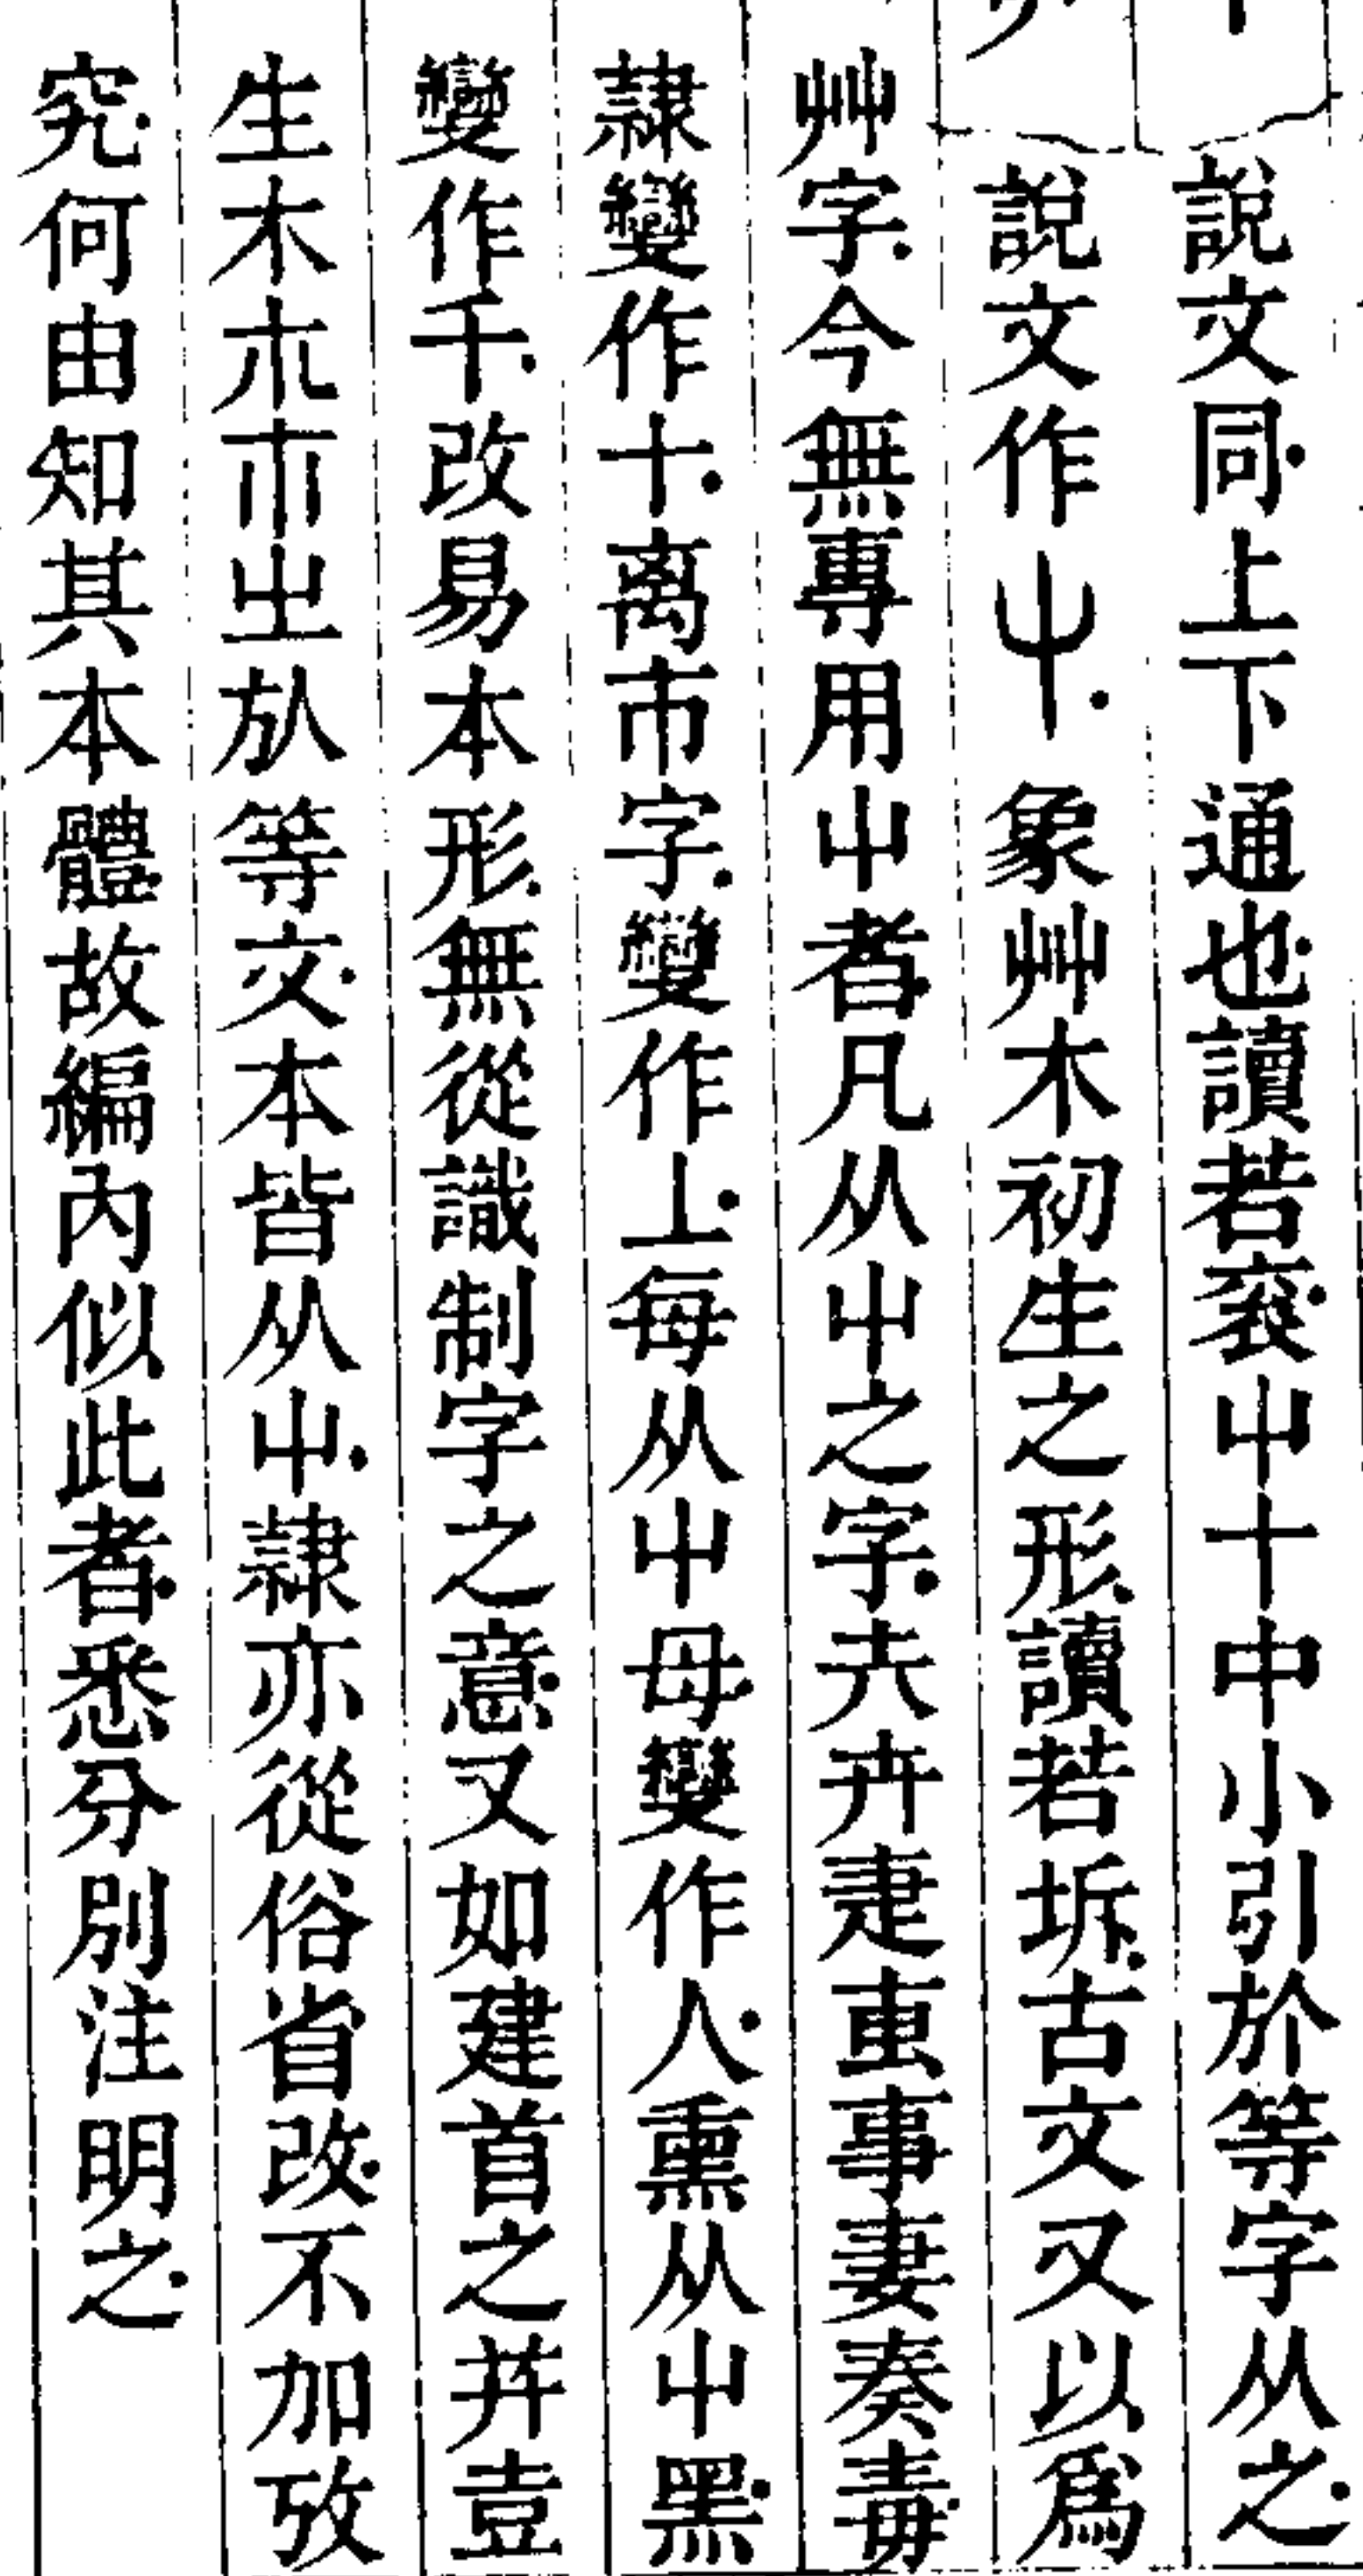 說文同上下通也讀若袞屮十中小引於等字从之
說文作屮象艸木初生之形讀若坼古文又以爲
艸字今無專用屮者凡从屮之字圥卉疌䖵事妻奏毒
隸變作十离巿字變作丄每从屮母變作人熏从屮黑
變作千改易本形無從識制字之意又如建首之丼壴
生木朮巿㞢㫃等文本皆从屮隸亦從俗省改不加攷
究何由知其本體故編內似此者悉分別注明之